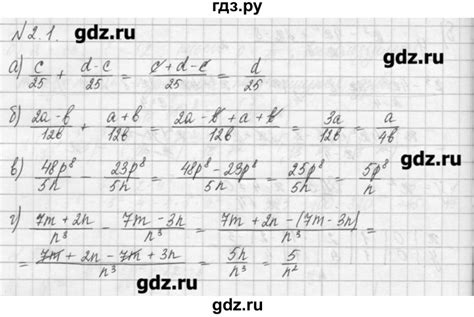 гдз.ру
№2.1. gdz.ru gdz.ru
а) c/25 + d-c/25 = c+d-c/25 = d/25
б) 2a-b/12b + a+b/12b = 2a-b+a+b/12b = 3a/12b = a/4b
gdz.ru gdz.ru
в) 48p⁸/5n - 23p⁸/5n = 48p⁸-23p⁸/5n = 25p⁸/5n = 5p⁸/n
г) 7m+2n/n³ - 7m-3n/n³ = 7m+2n-(7m-3n)/n³ =
= 7m+2n-7m+3n/n³ = 5n/n³ = 5/n²
gdz.ru gdz.ru